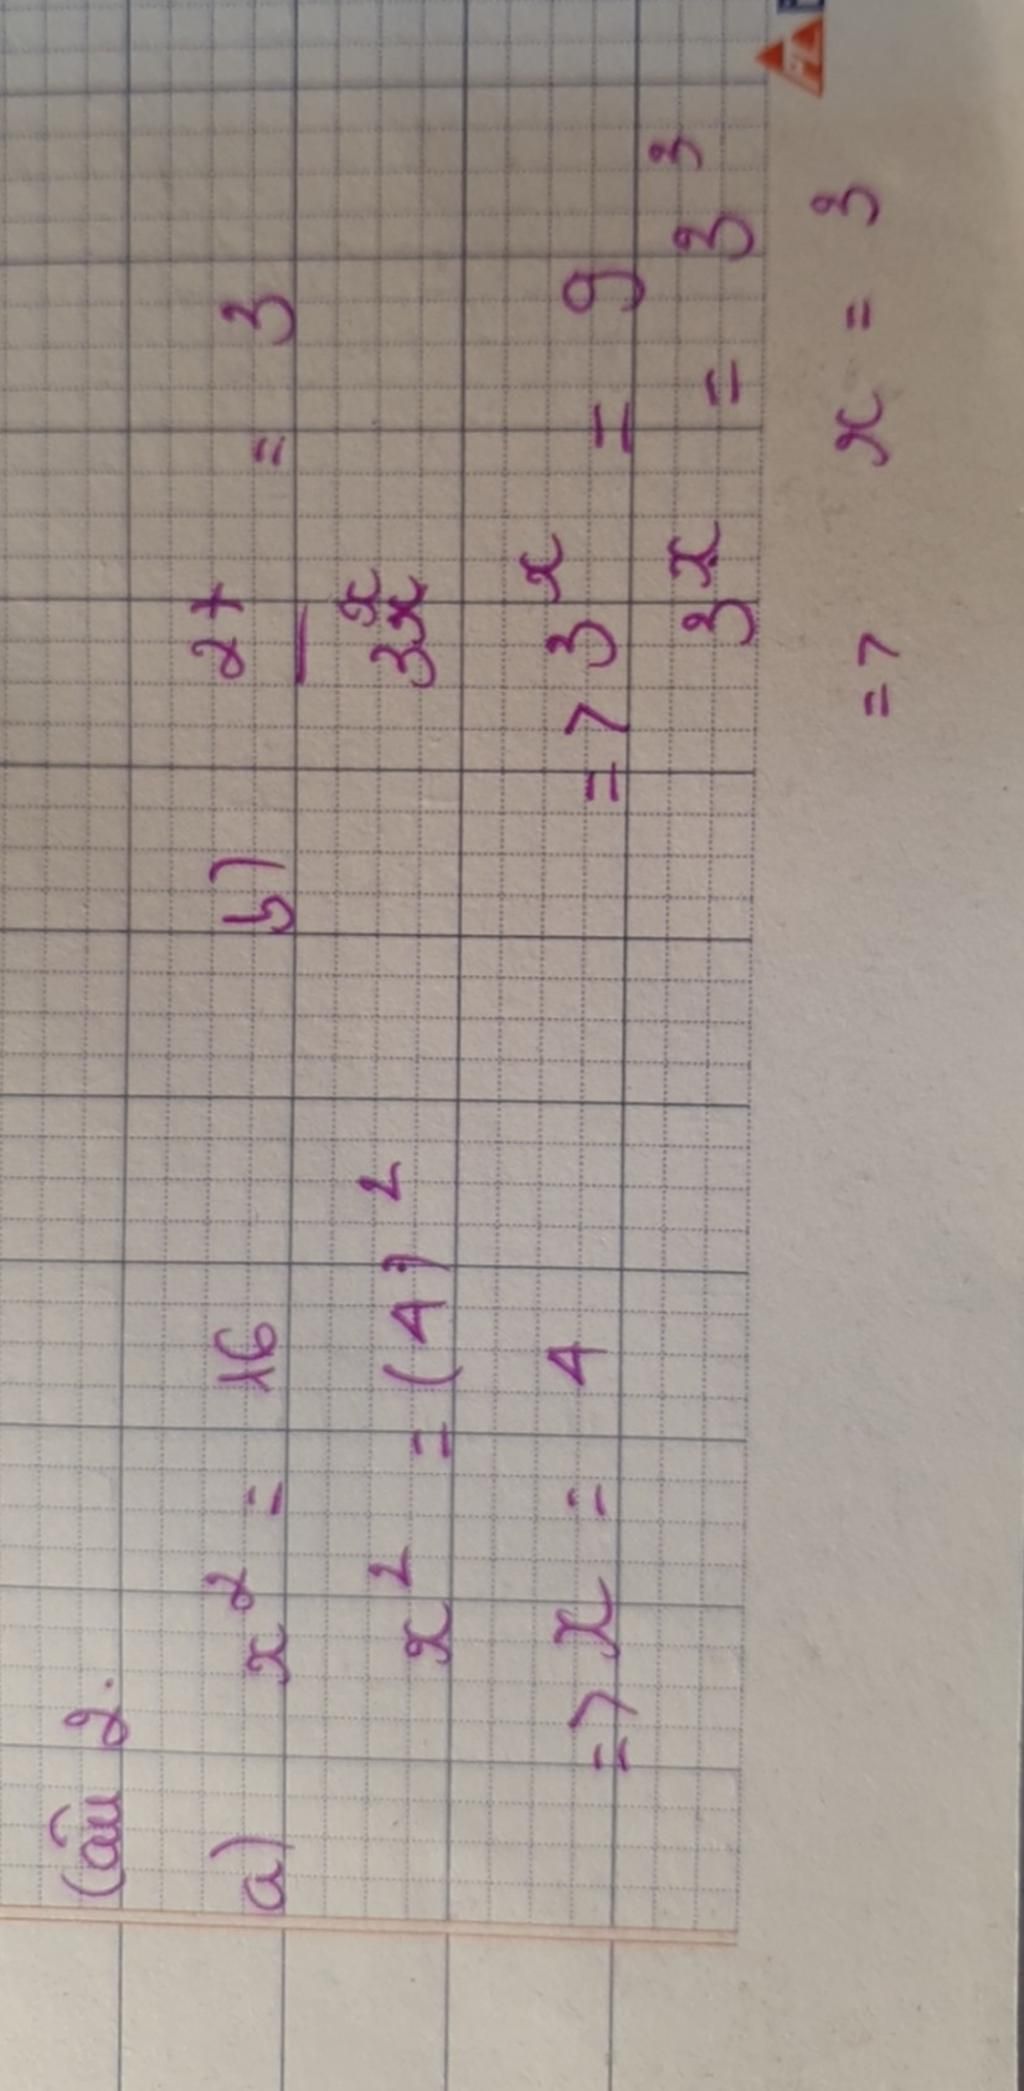 Câu 2.
a) x² = 16
x² = (4)²
=> x = 4
b) 27/3ˣ = 3
=> 3ˣ = 9
3ˣ = 3³
=> x = 3